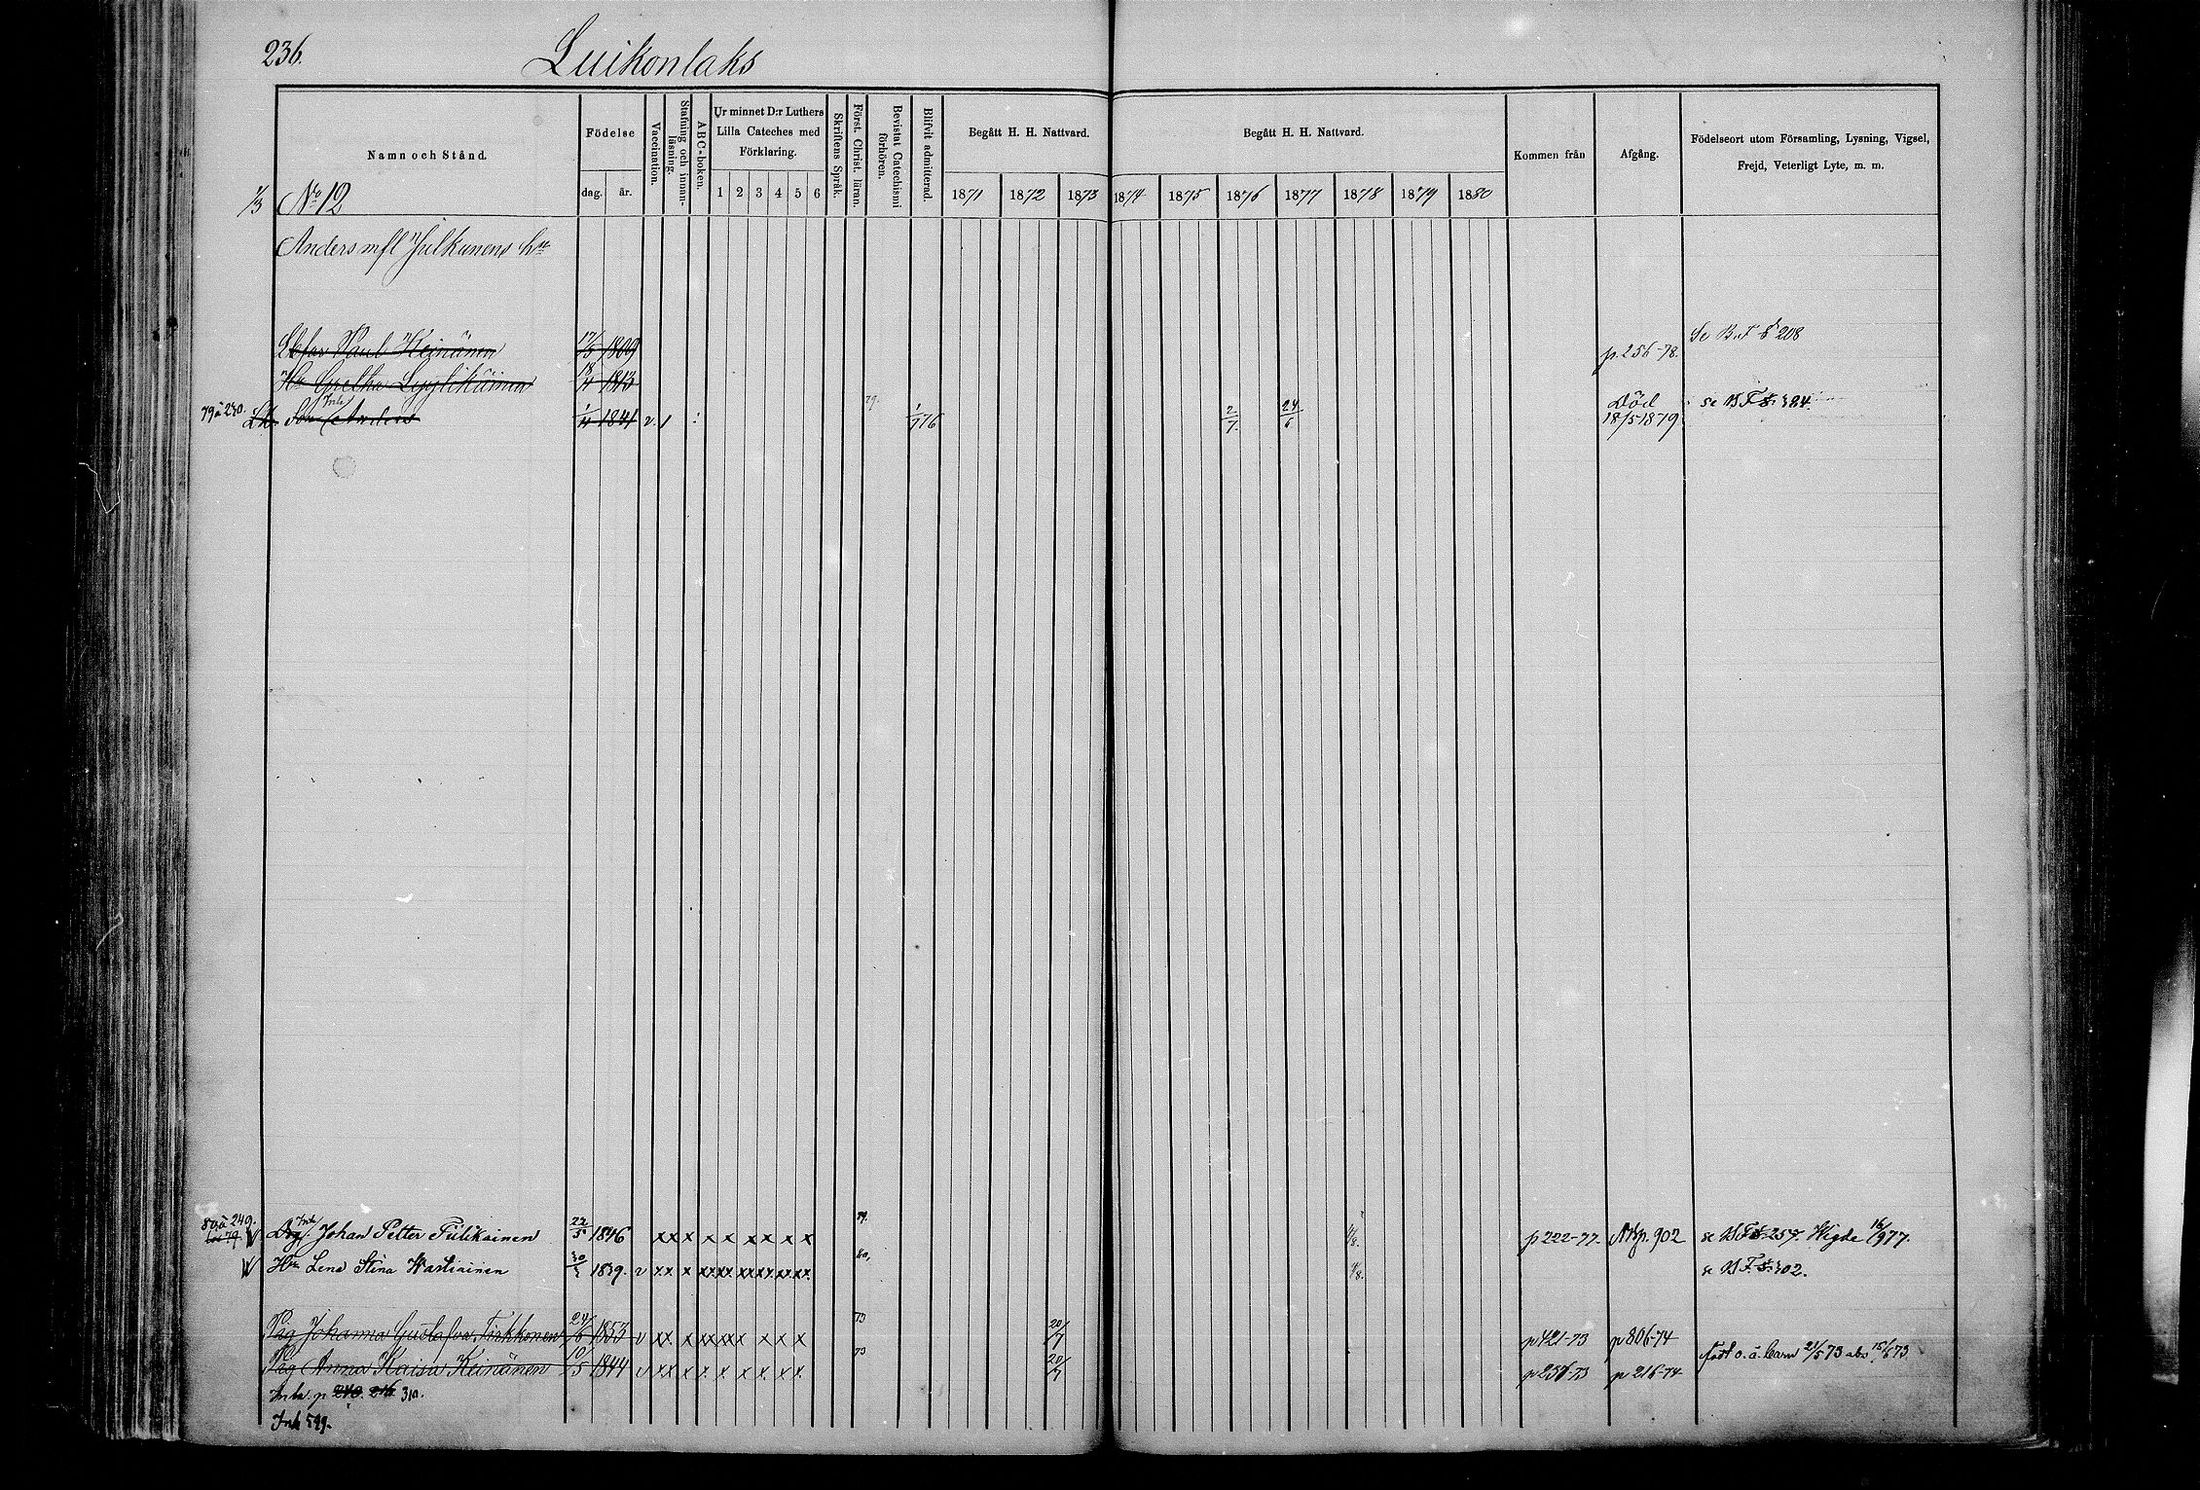 236.
Luikonlaks
Namn och Stånd.
Födelse
dag.
år.
Vaccination.
Stafning och innan-läsning.
ABC-boken.
Ur minnet D:r Luthers
Lilla Cateches med
Förklaring.
1 2 3 4 5 6
Skriftens Språk.
Först. Christ. läran.
Bevistat Catechismi förhören.
Blifvit admitterad.
Begått H. H. Nattvard.
1871 1872 1873
Begått H. H. Nattvard.
1874 1875 1876 1877 1878 1879 1880
Kommen från
Afgång.
Födelseort utom Församling, Lysning, Vigsel,
Frejd, Veterligt Lyte, m. m.
1/3 No 12
Anders mfl Julkunens hn
Paul Keinänen 17/5 1809 p. 256-78. Se B. F. § 208
Hu Gretha Lyylikäinen 18/4 1813
79 à 230. Son Inh Anders 1/4 1841 v. 1 79. 1/7 76 2/7. 24/6 Död 18/5 1879. se B F § 384.
80 à 249. Inh Johan Petter Tiilikainen 22/5 1846 xxx x x x x x x 79. 4/8. p 222-77. p. 902 se B F § 257. Wigde 16/9 77.
Hu Lena Stina Hartiainen 30/3 1839. v xx x xx xx xx xx xx xx 80, 4/8. se B. F. § 302.
Pig Johanna Gustafva Tirkkonen 24/6 1853 v xx x xx xx x x x 73 20/7 p 421-73 p 806-74
Pig Anna Kaisa Keinänen 10/5 1844 v xx x x x x x x 73 20/7 p 256-73 p 216-74 Född o. ä. barn 21/5 73 abs 15/6 73
Inh. p 240. 246. 310.
Inh 599.